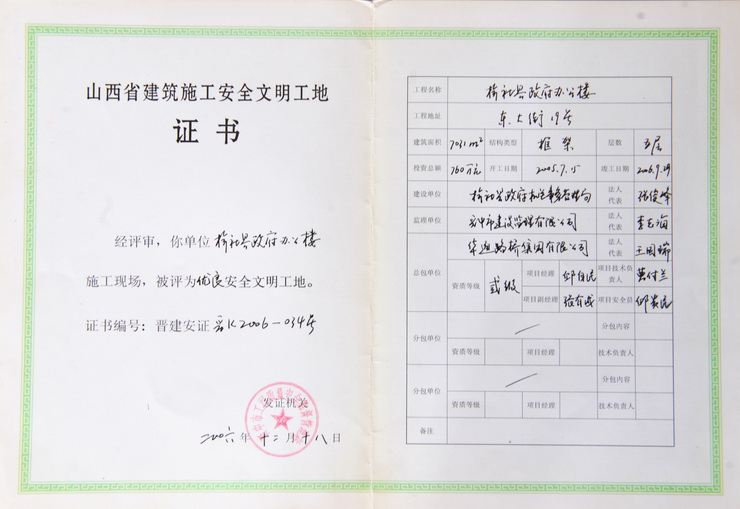 山西省建筑施工安全文明工地
证书
经评审，你单位榆社县政府办公楼
施工现场，被评为优良安全文明工地。
证书编号：晋建安证 晋K2006-034号
发证机关
二00六年十二月十八日
工程名称 榆社县政府办公楼
工程地址 东大街19号
建筑面积 7031m² 结构类型 框架 层数 五层
投资总额 760万元 开工日期 2005.7.15 竣工日期
建设单位 榆社县政府 法人代表 张俊峰
监理单位 晋中市建设监理有限公司 法人代表
总包单位 路桥集团有限公司 法人代表 王国瑞
资质等级 贰级 项目经理 项目技术负责人
项目副经理 项目安全员
分包单位 / 分包内容
资质等级 项目经理 技术负责人
分包单位 / 分包内容
资质等级 项目经理 技术负责人
备注